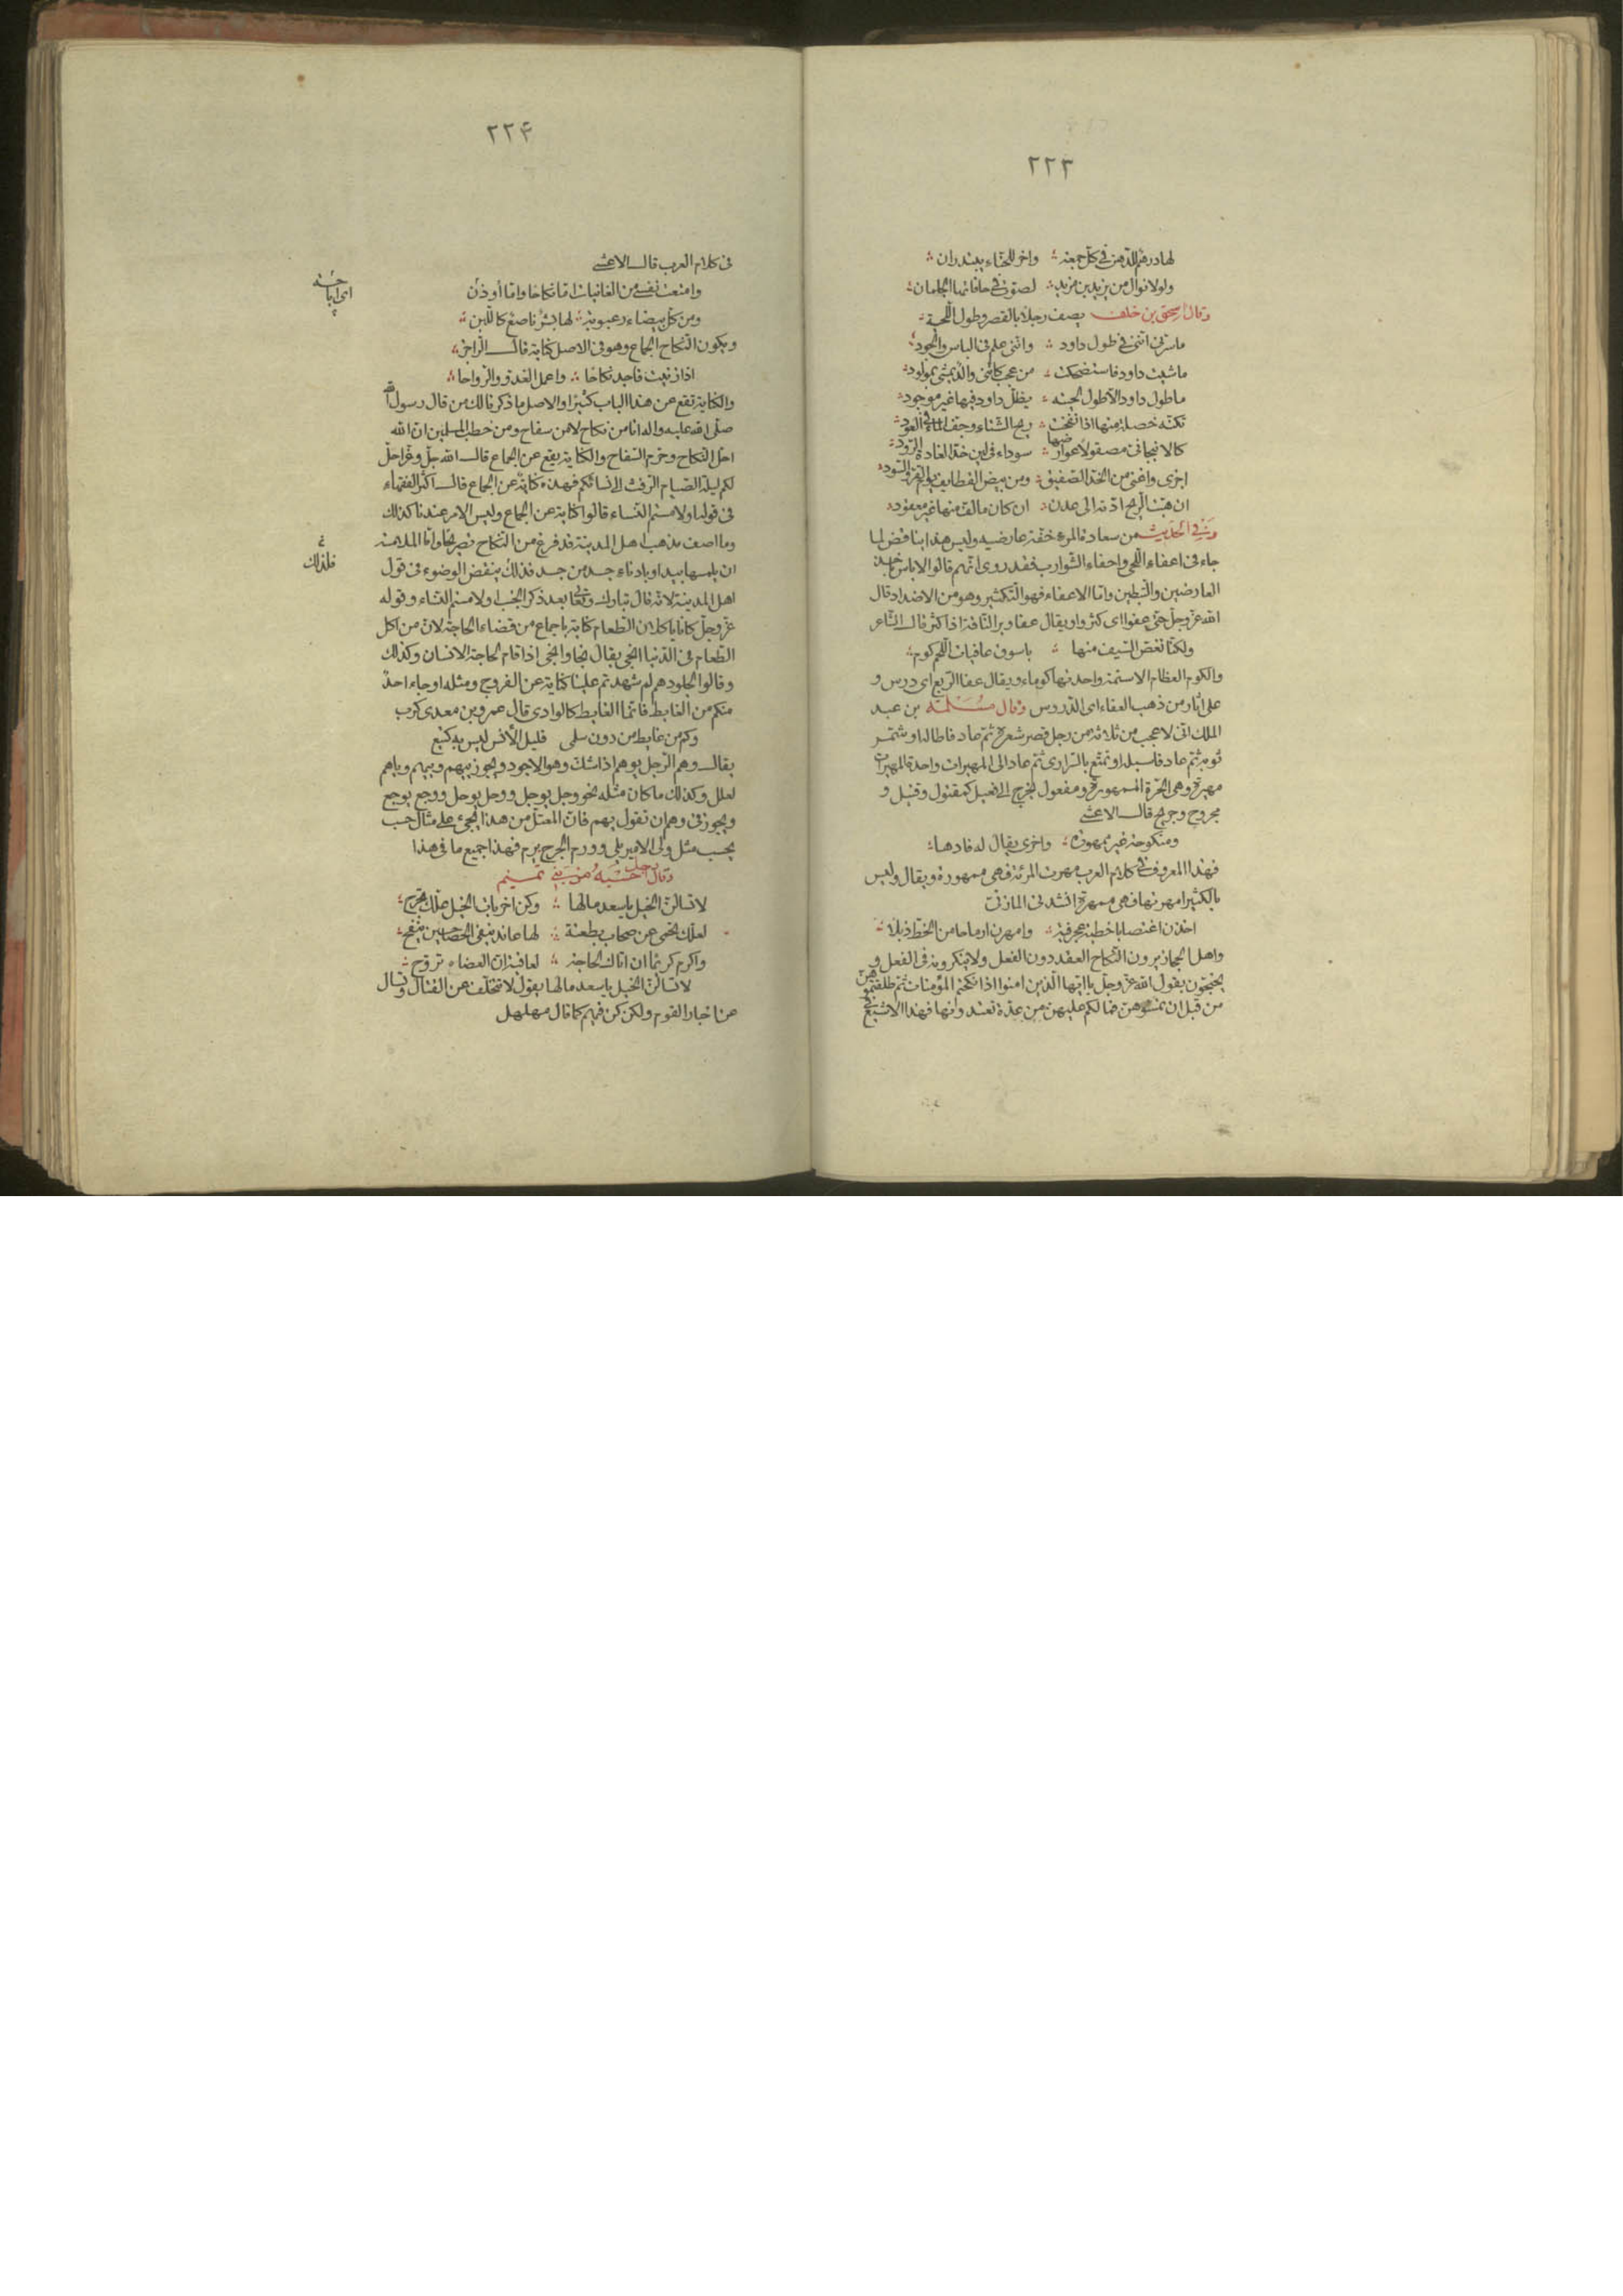 ٢٢٣
لها درهم للدهن في كل جمعة واخر للحناء يبتدران
ولولا نوال من يزيد بن مزيد لصوت في حافاتها الجلمان
وقال اسحق بن خلف يصف رجلا بالقصر وطول اللحية
ما سرني انني في طول داود وانني علم في الباس والجود
ماشيت داود فاستضحكت من عجب كانني والد يمشي بمولود
ما طول داود الا طول لحيته يظل داود فيها غير موجود
تكنه خصلة منها اذا نفخت ريح الشتاء وجف الماء في العود
كالانبجاني مصقولا عوارضها سوداء في لين خد الغادة الرود
اجزى واغنى من الخز الصفيق ومن بيض القطايف يوم القر والسود
ان هبت الريح ادته الى عدن ان كان ما لف منها غير معقود
وفي الحديث من سعادة المرء خفة عارضيه وليس هذا بناقض لما
جاء في اعفاء اللحى واحفاء الشوارب فقد روى انهم قالوا لا باس باخذ
العارضين والتبطين واما الاعفاء فهو التكثير وهو من الاضداد قال
الله عز وجل حتى عفوا اى كثروا ويقال عفا وبر الناقة اذا كثر قال الشاعر
ولكنا نعض السيف منها باسوق عافيات اللحم كوم
والكوم العظام الاسنمة واحدتها كوماء ويقال عفا الربع اى درس و
على اثار من ذهب العفاء اى الدروس وقال مسلمة بن عبد
الملك انى لاعجب من ثلاثة من رجل قصر شعره ثم عاد فاطاله او شمر
ثوبه ثم عاد فاسبله او تمتع بالسرارى ثم عاد الى المهيرات واحدة المهيرات
مهيرة وهى الحرة الممهورة ومفعول يخرج الى فعيل كمقتول وقتيل و
مجروح وجريح قال الاعشى
ومنكوحة غير ممهورة واخرى يقال له فادها
فهذا المعروف في كلام العرب مهرت المرئة فهى ممهورة ويقال وليس
بالكثير امهرتها فهى ممهرة انشدنى المازنى
اخذن اغتصابا خطبة عجرفية وامهرن ارماحا من الخط ذبلا
واهل الحجاز يرون النكاح العقد دون الفعل ولا ينكرونه في الفعل و
يحتجون بقول الله عز وجل يا ايها الذين امنوا اذا نكحتم المؤمنات ثم طلقتموهن
من قبل ان تمسوهن فما لكم عليهن من عدة تعتدونها فهذا الاشيع في
٢٢۴
في كلام العرب قال الاعشى
وامتعت نفسى من الغانيات اما نكاحا واما أوذن
ومن كل بيضاء رعبوبة لها بشر ناصع كاللبن
ويكون النكاح الجماع وهو في الاصل كناية قال الراجز
اذا زنيت فاجد نكاحا واعمل الغدو والرواحا
والكناية تقع عن هذا الباب كثيرا والاصل ما ذكرنا لك من قال رسول الله
صلى الله عليه واله انا من نكاح لا من سفاح ومن خطب المسلمين ان الله
احل النكاح وحرم السفاح والكناية يقع عن الجماع قال الله جل وعز احل
لكم ليلة الصيام الرفث الى نسائكم فهذه كناية عن الجماع قال اكثر الفقهاء
في قوله او لامستم النساء قالوا كناية عن الجماع وليس الامر عندنا كذلك
وما اصف مذهب اهل المدينة قد فرغ من النكاح تصريحا وانما الملامسة
ان يلمسها بيد او بادناء جسد من جسد فذلك ينقض الوضوء في قول
فلذلك
اهل المدينة لانه قال تبارك وتعالى بعد ذكر الجنب او لامستم النساء وقوله
عز وجل كانا ياكلان الطعام كناية باجماع من قضاء الحاجة لان من اكل
الطعام في الدنيا انجى يقال نجا وانجى اذا قام لحاجة الانسان وكذلك
وقالوا لجلودهم لم شهدتم علينا كناية عن الفروج ومثله او جاء احد
منكم من الغايط فانما الغايط كالوادى قال عمرو بن معدى كرب
وكم من غايط من دون سلمى قليل الأنس ليس به كتيع
يقال وهم الرجل يوهم اذا شك وهو الاجود ويجوز ييهم وييهم وياهم
لعلل وكذلك ما كان مثله نحو وجل يوجل ووحل يوحل ووجع يوجع
ويجوز في وهم ان تقول يهم فان المعتل من هذا يجئ على مثال حسب
يحسب مثل ولى الامير يلى وورم الجرح يرم فهذا جميع ما في هذا
وقال رجل من بني تميم
لا تسالن الخيل يا سعد ما لها وكن اخريات الخيل علك تجرح
لعلك تحمى عن صحاب بطعنة لها عاند ينفى الحصا حين ينفح
واكرم كريما ان اتاك لحاجة لعاقبة ان العضاه تروح
لا تسالن الخيل يا سعد ما لها يقول لا تتخلف عن القتال وتسال
عن اخبار القوم ولكن كن فيهم كما قال مهلهل